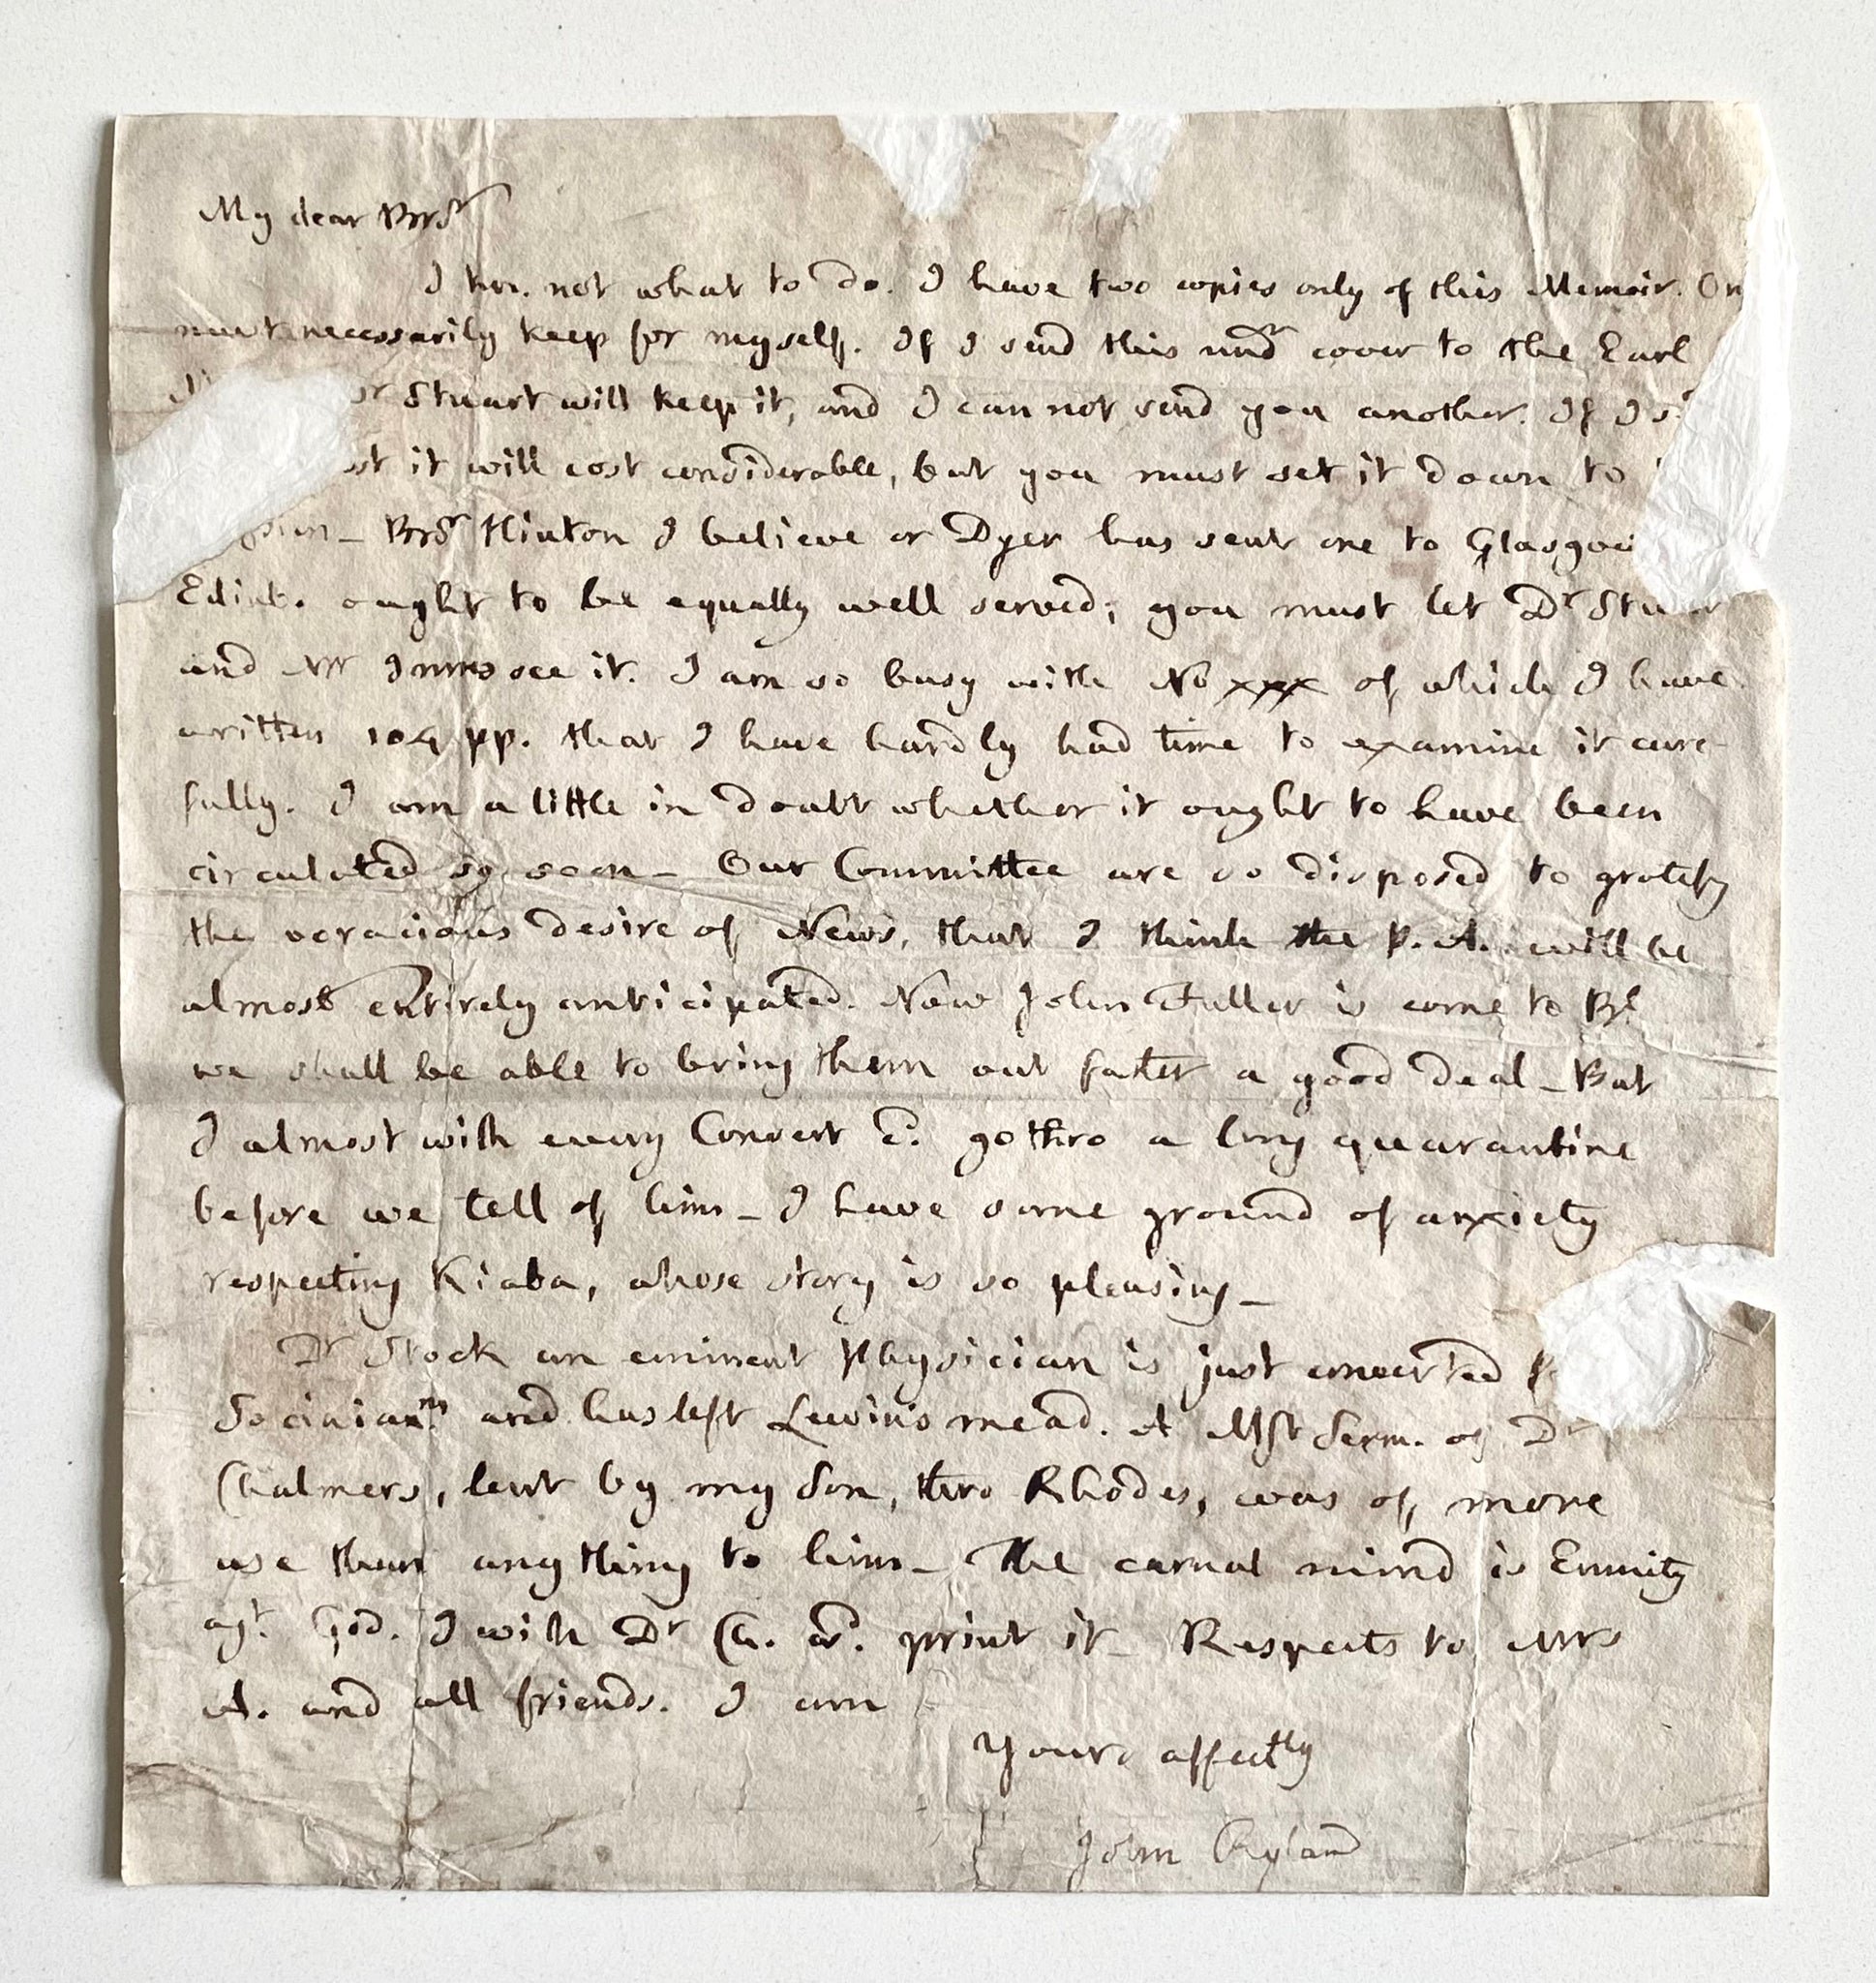 My dear Bror
I kn. not what to do. I have two copies only of this Memoir. On
must necessarily keep for myself. If I send this undr cover to the Earl
Stuart will keep it, and I can not send you another. If I
it will cost considerable, but you must set it down to
Bror Hinton I believe or Dyer has sent one to Glasgow
Edinb. ought to be equally well served; you must let Dr Stuart
and Mr Innes see it. I am so busy with No xxx of which I have
written 104 pp. that I have hardly had time to examine it care-
fully. I am a little in doubt whether it ought to have been
circulated so soon - Our Committee are so disposed to gratify
the voracious desire of News, that I think the P. A. will be
almost entirely anticipated. Now John Fuller is come to Bl
we shall be able to bring them out faster a good deal - But
I almost wish every Convert cd. go thro a long quarantine
before we tell of him - I have some ground of anxiety
respecting Kiaba, whose story is so pleasing -
Dr Stock an eminent Physician is just converted
Socinianm and has left Lewins mead. A Mst Serm. of Dr
Chalmers, lent by my Son, thro Rhodes, was of more
use than any thing to him - The carnal mind is Enmity
agt. God. I wish Dr Ch. wd. print it - Respects to Mrs
A. and all friends. I am
Yours affectly
John Ryland